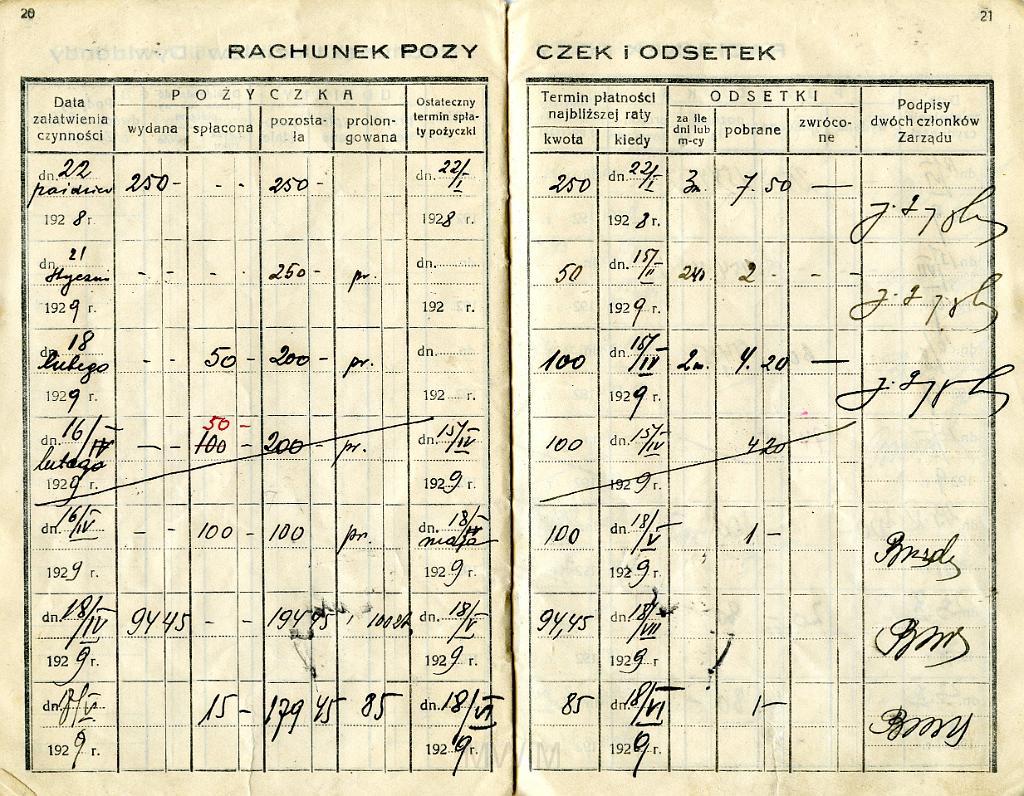 20
RACHUNEK POZY
Data załatwienia czynności
POŻYCZKA
wydana spłacona pozosta-ła prolon-gowana
Ostateczny termin spła-ty pożyczki
dn. 22 250 - - - 250 - dn. 22/I
1928 r. 1928 r.
dn. 21 - - - - 250 - pr. dn.
1929 r. 192 r.
dn. 18 lutego - - 50 - 200 - pr. dn.
1929 r. 192 r.
50 -
dn. 16/IV lutego - - 100 - 200 - pr. dn. 15/IV
1929 r. 1929 r.
dn. 16/IV - - 100 - 100 - pr. dn. 18/ maja
1929 r. 1929 r.
dn. 18/IV 94 45 - - 194 45 100 zł. dn. 18/V
1929 r. 1929 r.
dn. 17/V 15 - 179 45 85 dn. 18/VI
1929 r. 1929 r.
21
CZEK i ODSETEK
Termin płatności najbliższej raty
kwota kiedy
ODSETKI
za ile dni lub m-cy pobrane zwróco-ne
Podpisy dwóch członków Zarządu
250 dn. 22/I 3 m. 7.50 —
1928 r.
50 dn. 15/II 2 - - -
1929 r.
100 dn. 15/IV 2 m. 4.20 —
1929 r.
100 dn. 15/IV 4 20
1929 r.
100 dn. 18/V 1 -
1929 r.
94,45 dn. 18/VII
1929 r.
85 dn. 18/VI 1 -
1929 r.